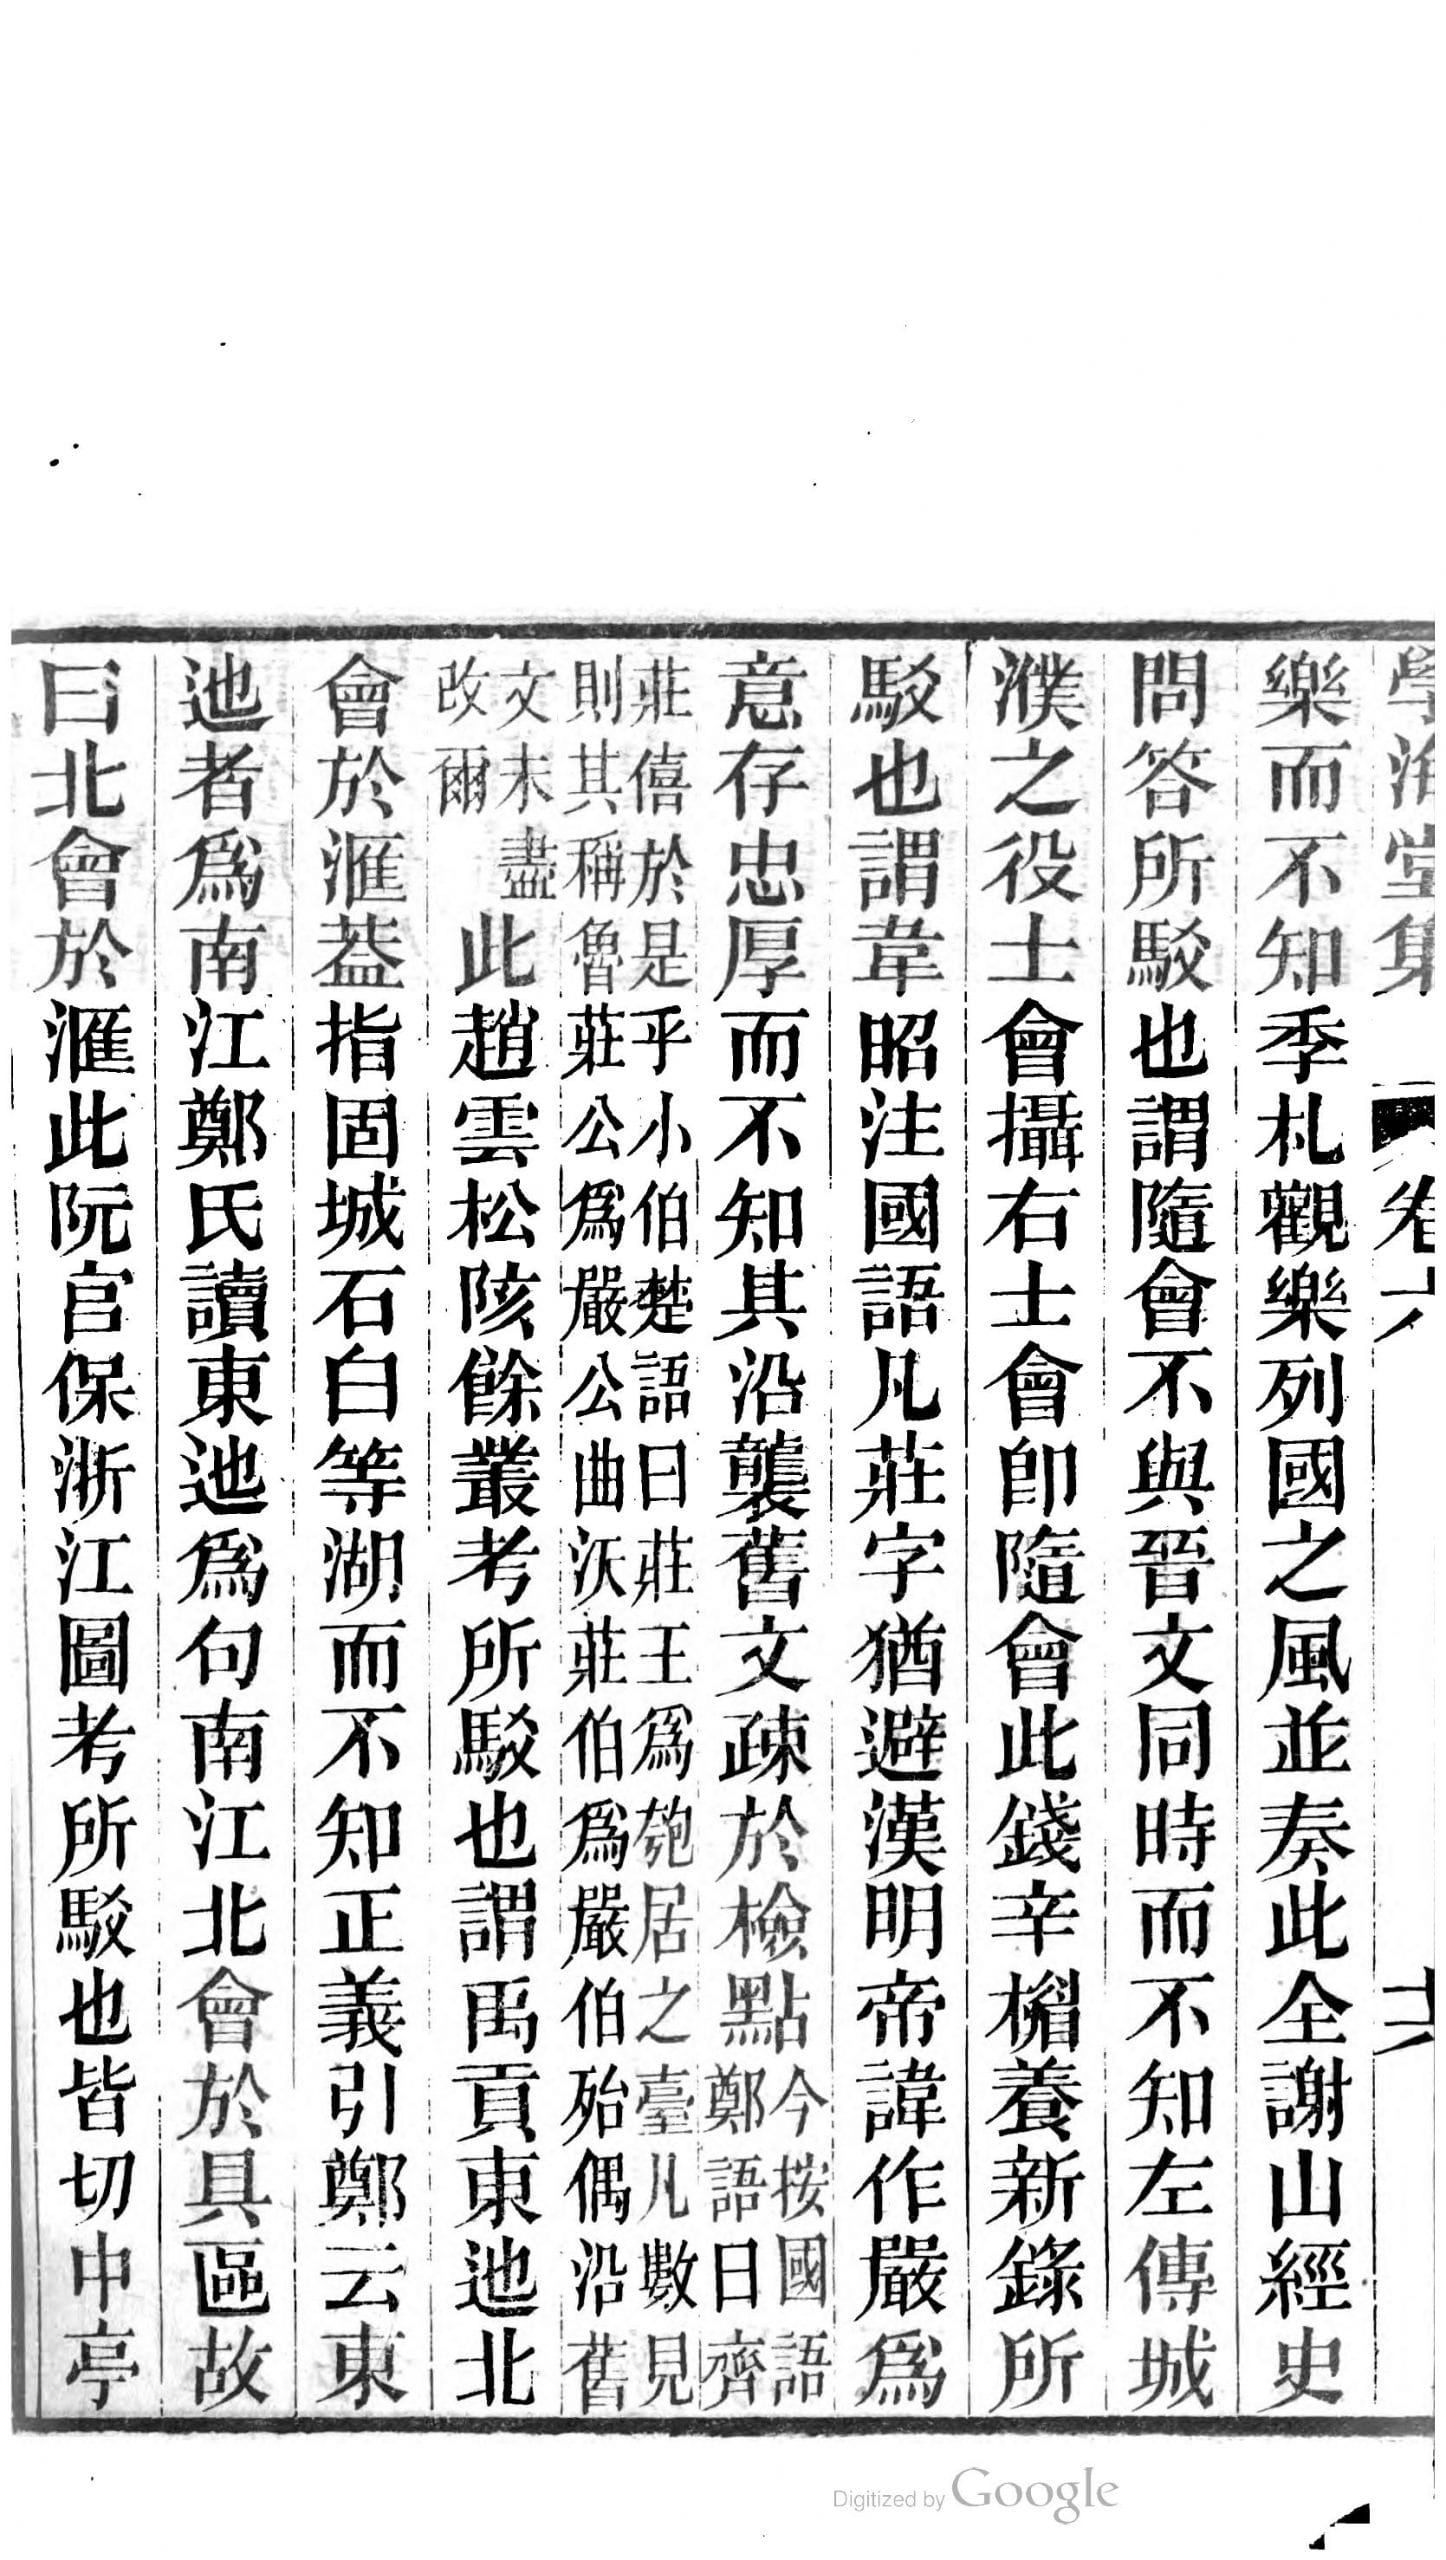 學海堂集 卷六 十六
樂而不知季札觀樂列國之風並奏此全謝山經史
問答所駁也謂隨會不與晉文同時而不知左傳城
濮之役士會攝右士會卽隨會此錢辛楣養新錄所
駁也謂韋昭注國語凡莊字猶避漢明帝諱作嚴爲
意存忠厚而不知其沿襲舊文疎於檢點今按國語
鄭語曰齊
莊僖於是乎小伯楚語曰莊王爲匏居之臺凡數見
則其稱魯莊公爲嚴公曲沃莊伯爲嚴伯殆偶沿舊
文未盡
改爾
此趙雲松陔餘叢考所駁也謂禹貢東迆北
會於滙葢指固城石臼等湖而不知正義引鄭云東
迆者爲南江鄭氏讀東迆爲句南江北會於具區故
曰北會於滙此阮宮保浙江圖考所駁也皆切中亭
Digitized by Google